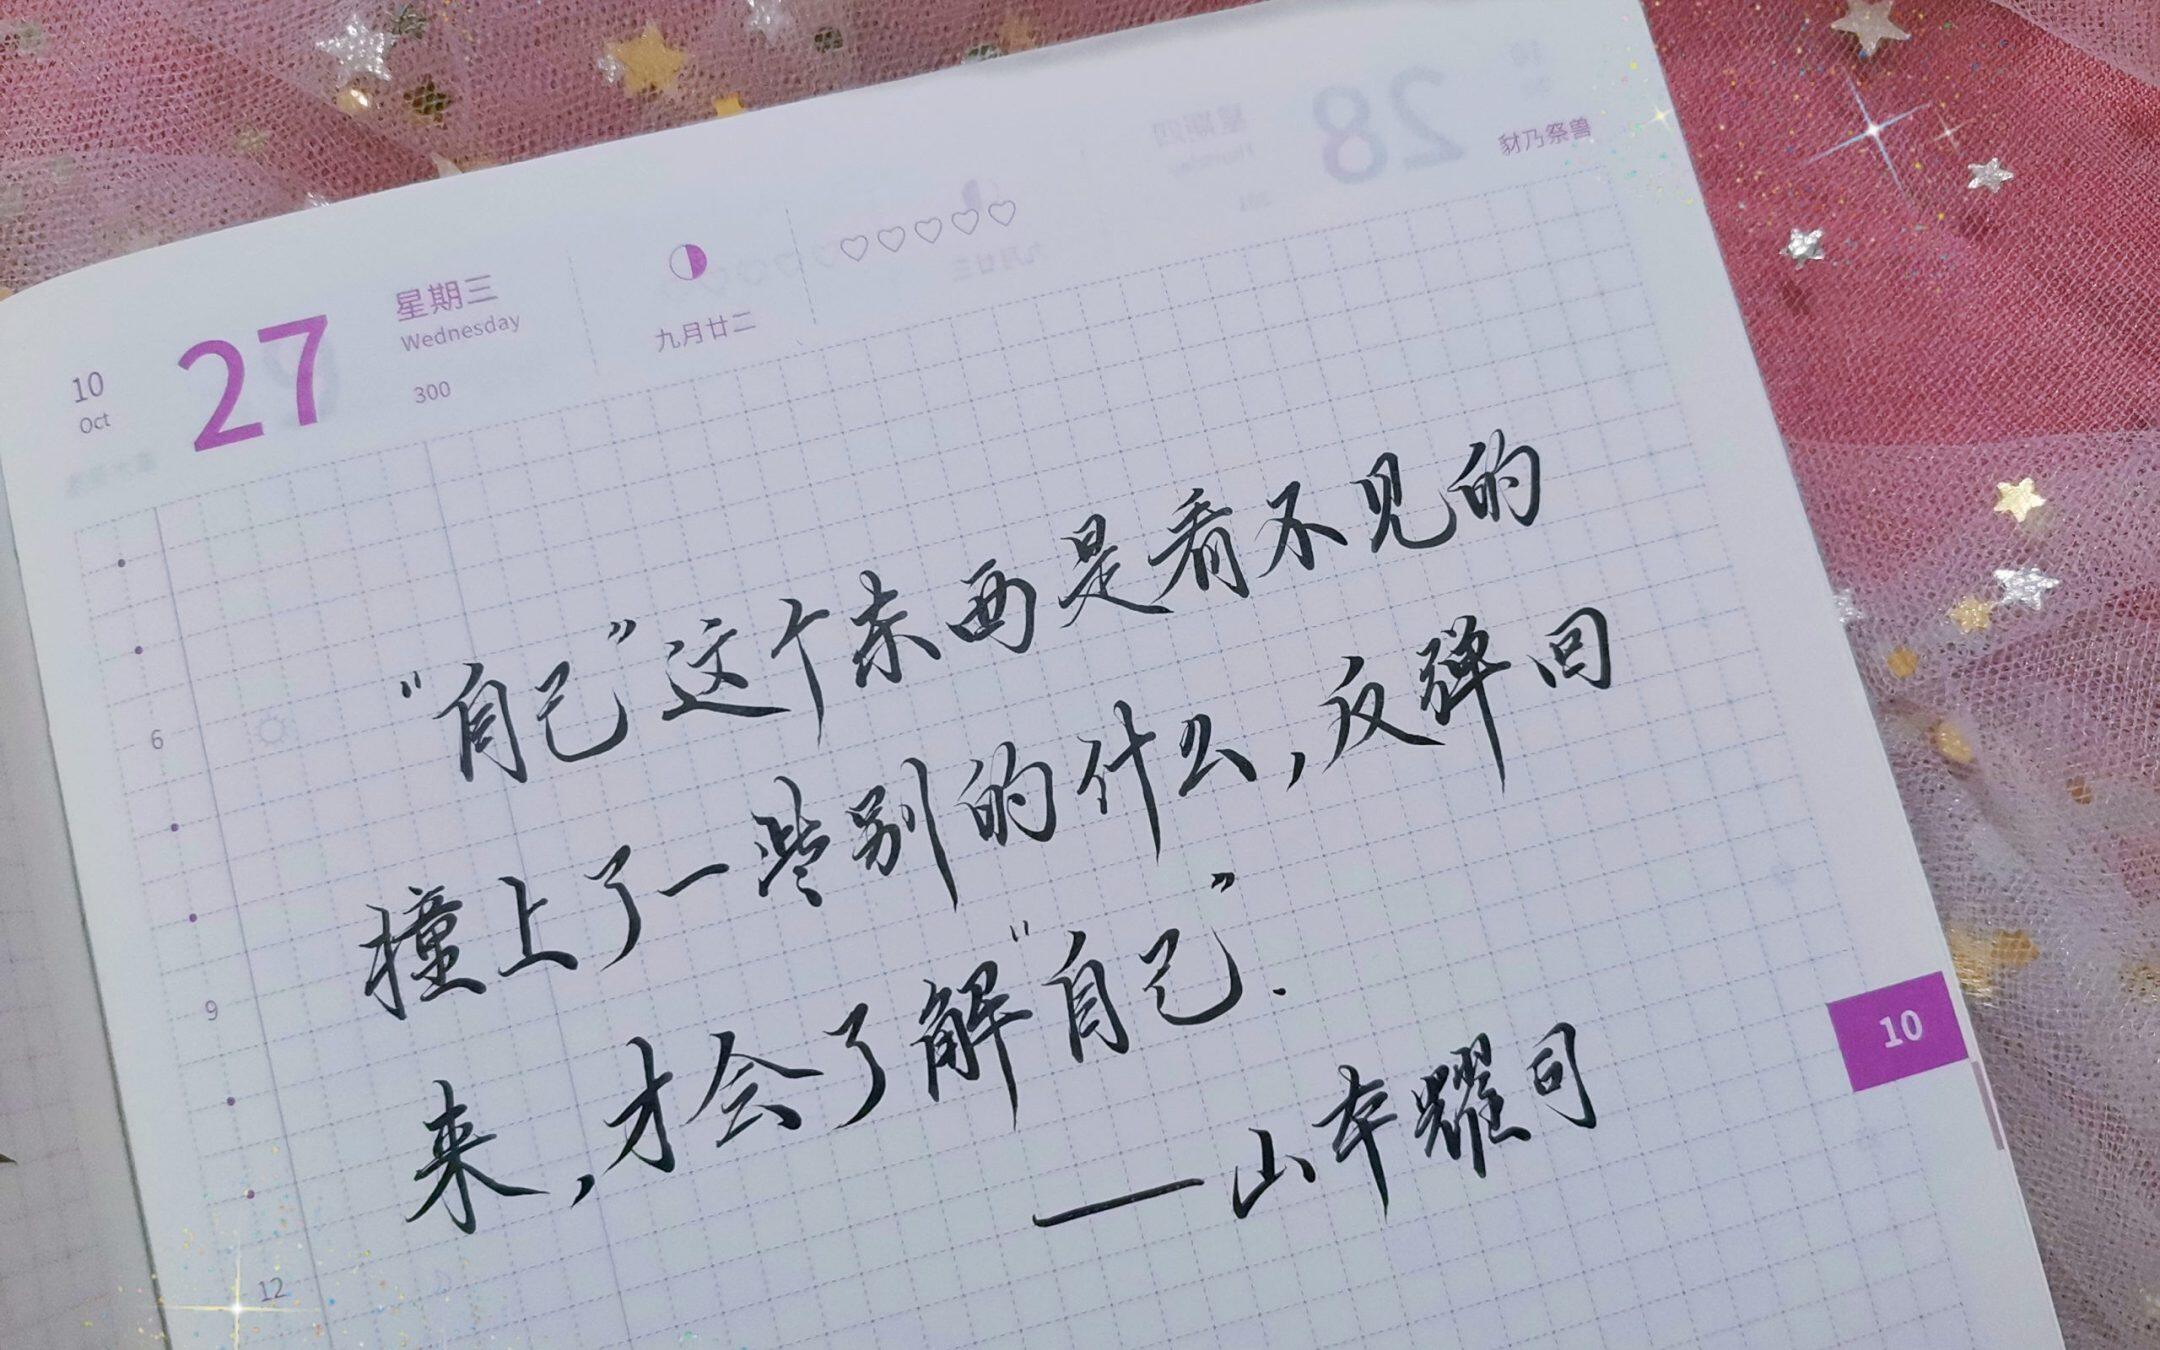 10
Oct
27
星期三
Wednesday
300
九月廿二
豺乃祭兽
6
9
12
10
“自己”这个东西是看不见的
撞上了一些别的什么,反弹回
来,才会了解“自己”.
——山本耀司